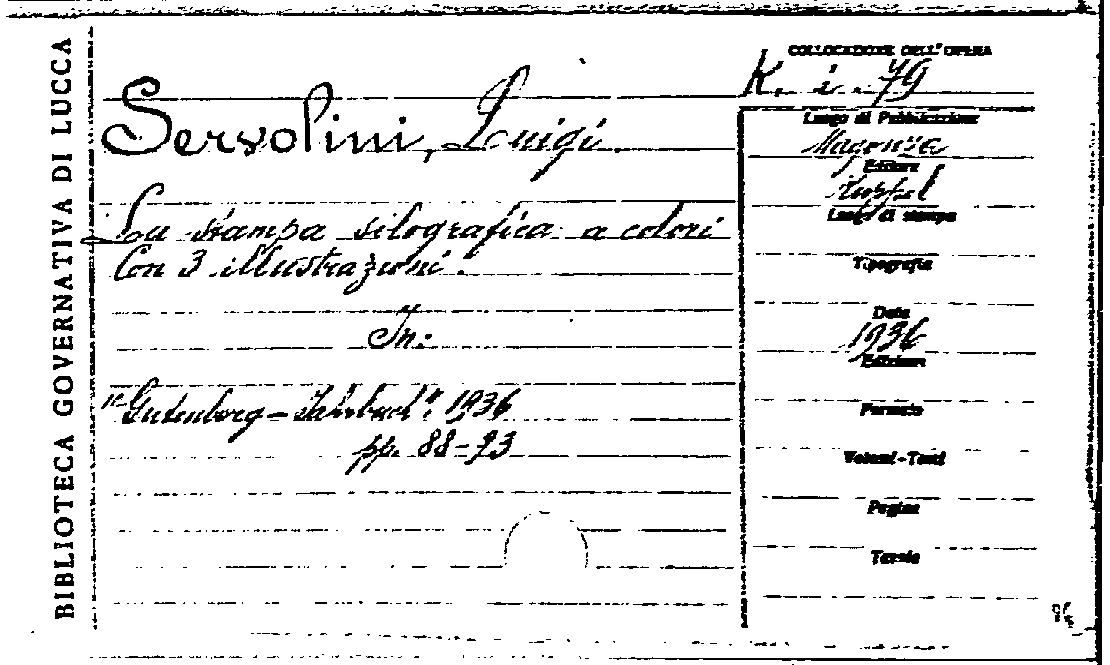 BIBLIOTECA GOVERNATIVA DI LUCCA
Servolini, Luigi.
La stampa silografica a colori
Con 3 illustrazioni.
In:
"Gutenberg - Jahrbuch", 1936
pp. 88-93
COLLOCAZIONE DELL'OPERA
K. i. 79
Luogo di Pubblicazione
Magonza
Editore
Kuppel
Luogo di stampa
Tipografia
Data
1936
Edizione
Formato
Volumi-Tomi
Pagine
Tavole